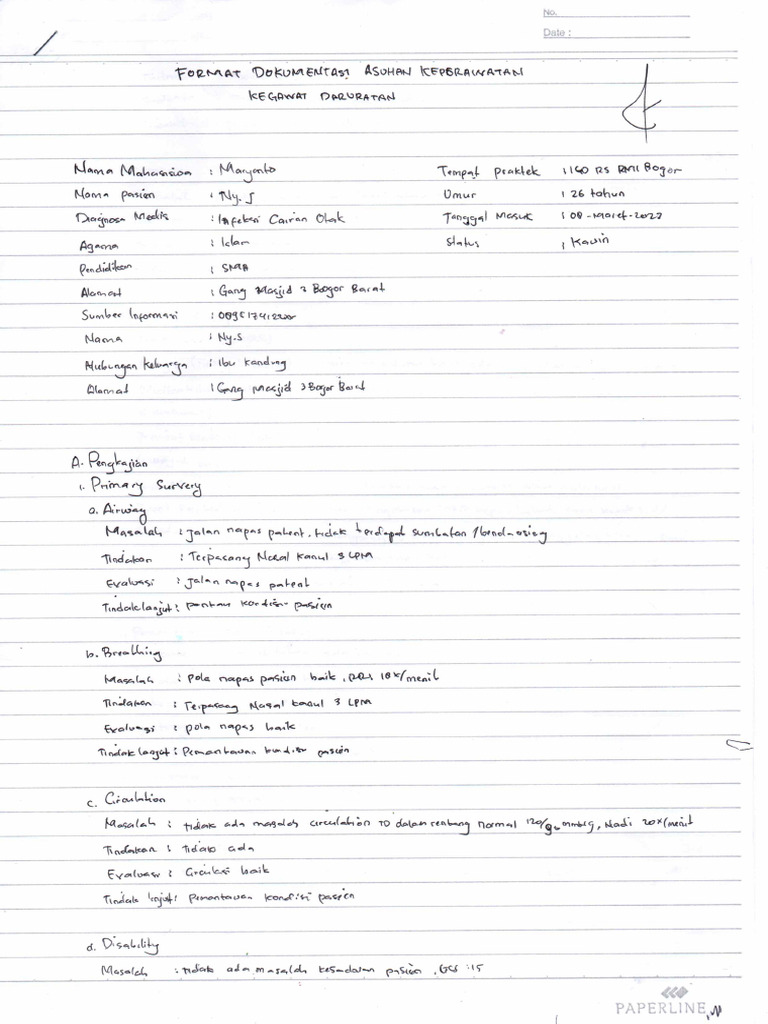 No.
Date :
FORMAT DOKUMENTASI ASUHAN KEPERAWATAN
KEGAWAT DARURATAN
Nama Mahasiswa : Maryanto Tempat praktek : IGD RS PMI Bogor
Nama pasien : Ny. S Umur : 26 tahun
Diagnosa Medis : Infeksi Cairan Otak Tanggal Masuk : 08-Maret-2022
Agama : Islam Status : Kawin
Pendidikan : SMA
Alamat : Gang Masjid 2 Bogor Barat
Sumber Informasi :
Nama : Ny.S
Hubungan Keluarga : Ibu Kandung
Alamat : Gang Masjid 2 Bogor Barat
A. Pengkajian
1. Primary Survery
a. Airway
Masalah : jalan napas patent, tidak terdapat sumbatan /benda asing
Tindakan : Terpasang Nasal kanul 3 LPM
Evaluasi : jalan napas patent
Tindak lanjut : pantau kondisi pasien
b. Breathing
Masalah : pola napas pasien baik, RR: 18x/menit
Tindakan : Terpasang Nasal kanul 3 LPM
Evaluasi : pola napas baik
Tindak lanjut : Pemantauan kondisi pasien
c. Circulation
Masalah : tidak ada masalah circulation TD dalam rentang normal 120/90 mmHg, Nadi 20x/menit
Tindakan : tidak ada
Evaluasi : Circulasi baik
Tindak lanjut : Pemantauan kondisi pasien
d. Disability
Masalah : tidak ada masalah kesadaran pasien, GCS : 15
PAPERLINE